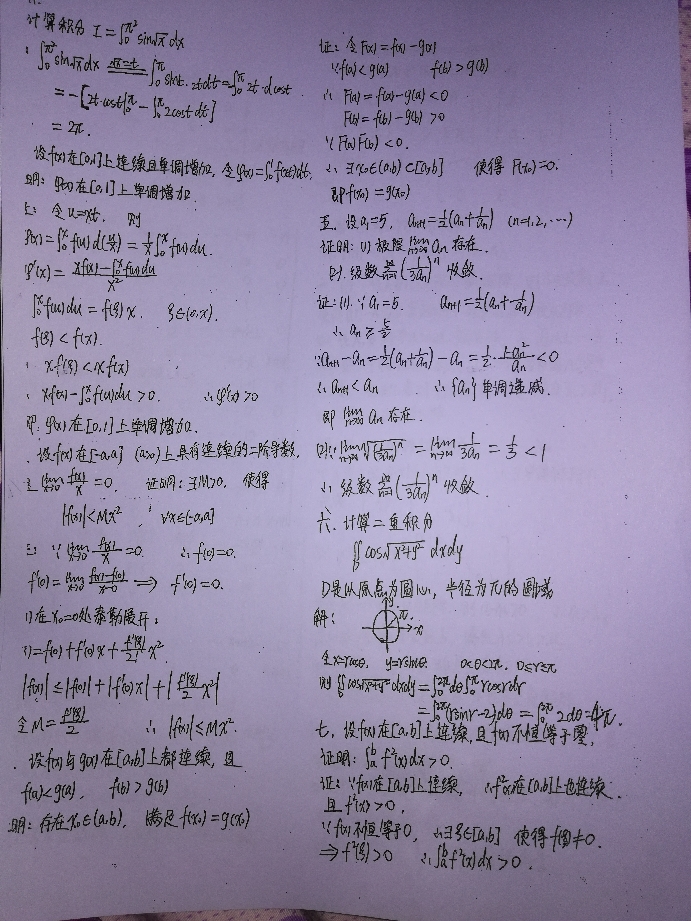 计算积分 I=∫₀^{π²} sin√x dx
∫₀^{π²} sin√x dx (√x=t) ∫₀^π sint·2tdt=∫₀^π 2t·dcost
=-[2t·cost|₀^π-∫₀^π 2costdt]
=2π.
设f(x)在[0,1]上连续且单调增加,令φ(x)=∫₀¹f(xt)dt,
明:φ(x)在[0,1]上单调增加
令u=xt, 则
φ(x)=∫₀^x f(u)d(u/x)=1/x ∫₀^x f(u)du.
φ'(x)=(xf(x)-∫₀^x f(u)du)/x²
∫₀^x f(u)du=f(ξ)x. ξ∈(0,x).
f(ξ)<f(x).
xf(ξ)<xf(x)
xf(x)-∫₀^x f(u)du>0. ∴φ'(x)>0
即:φ(x)在[0,1]上单调增加.
设f(x)在[-a,a] (a>0)上具有连续的二阶导数,
lim_{x→0} f(x)/x=0. 证明:∃M>0, 使得
|f(x)|<Mx² ∀x∈[-a,a]
∵lim_{x→0} f(x)/x=0. ∴f(0)=0.
f'(0)=lim_{x→0} (f(x)-f(0))/(x-0) ⟹ f'(0)=0.
在x₀=0处泰勒展开:
=f(0)+f'(0)x+f''(ξ)/2! x².
|f(x)|≤|f(0)|+|f'(0)x|+|f''(ξ)/2 x²|
令M=f''(ξ)/2 ∴|f(x)|<Mx².
设f(x)与g(x)在[a,b]上都连续,且
f(a)<g(a), f(b)>g(b)
明:存在x₀∈(a,b), 满足f(x₀)=g(x₀)
证:令F(x)=f(x)-g(x)
∵f(a)<g(a) f(b)>g(b)
∴F(a)=f(a)-g(a)<0
F(b)=f(b)-g(b)>0
∵F(a)F(b)<0.
∴∃x₀∈(a,b)⊂[a,b] 使得F(x₀)=0.
即f(x₀)=g(x₀)
五. 设a₁=5, aₙ₊₁=1/2(aₙ+1/aₙ) (n=1,2,…)
证明:(1)极限lim_{n→∞} aₙ存在.
(2).级数∑(1/3aₙ)ⁿ收敛.
证:(1).∵a₁=5. aₙ₊₁=1/2(aₙ+1/aₙ)
∵aₙ₊₁-aₙ=1/2(aₙ+1/aₙ)-aₙ=1/2·(1-aₙ²)/aₙ<0
∴aₙ₊₁<aₙ ∴{aₙ}单调递减.
即lim_{n→∞} aₙ存在.
(2):∵lim_{n→∞} ⁿ√(1/3aₙ)ⁿ=lim_{n→∞} 1/3aₙ=1/3<1
∴级数∑(1/3aₙ)ⁿ收敛.
六、计算二重积分
∬_D cos√(x²+y²) dxdy
D是以原点为圆心,半径为π的圆域
解: π. x
令x=rcosθ. y=rsinθ. 0≤θ<2π. 0≤r≤π
则∬_D cos√(x²+y²) dxdy=∫₀^{2π}dθ∫₀^π rcosrdr
=∫₀^{2π}(rsinr-2)dθ=∫₀^{2π} 2dθ=4π.
七、设f(x)在[a,b]上连续,且f(x)不恒等于零,
证明:∫ₐᵇ f²(x)dx>0.
证:∵f(x)在[a,b]上连续, ∴f²(x)在[a,b]上也连续.
且f²(x)>0,
∵f(x)不恒等于0, ∴∃ξ∈[a,b] 使得f(ξ)≠0.
⟹f²(ξ)>0 ∴∫ₐᵇ f²(x)dx>0.